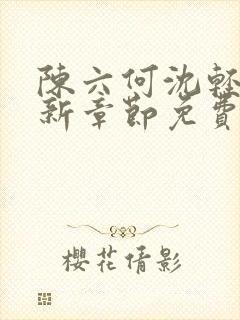 陳六何沈輕
新章節免費
櫻花倩影